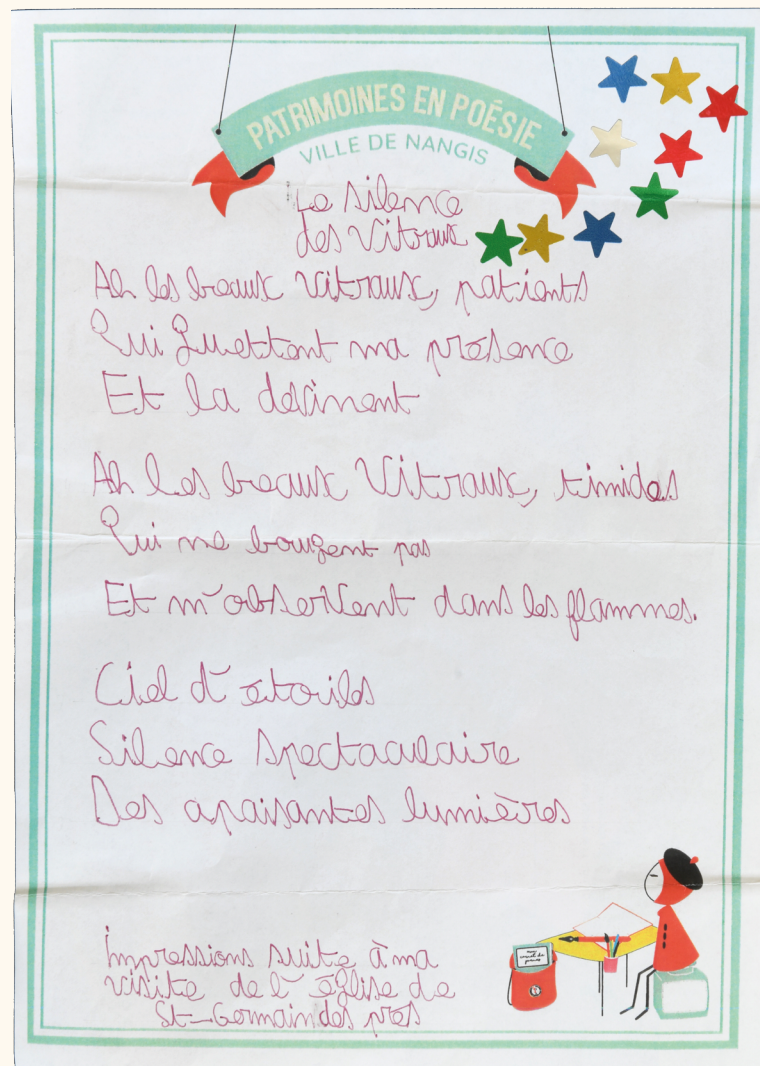 PATRIMOINES EN POÉSIE
VILLE DE NANGIS
Le silence
des Vitraux
Ah les beaux Vitraux, patients
Qui guettent ma présence
Et la devinent
Ah les beaux Vitraux, timides
Qui ne bougent pas
Et m'observent dans les flammes.
Ciel d'étoiles
Silence spectaculaire
Des apaisantes lumières
Impressions suite à ma
visite de l'église de
St-Germain des prés